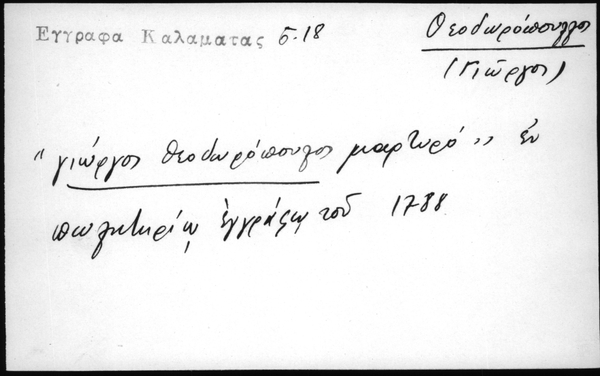 Εγγραφα Καλαματας σ. 18
Θεοδωρόπουλος
(Γιώργος)
"γιώργος θεοδωρόπουλος μαρτυρό" ἐν
πωλητηρίῳ ἐγγράφῳ τοῦ 1788